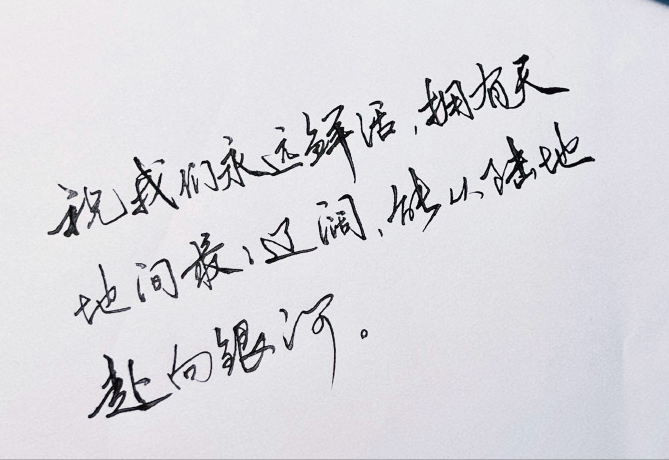 祝我们永远鲜活,拥有天
地间最辽阔,能从陆地
赴向银河。